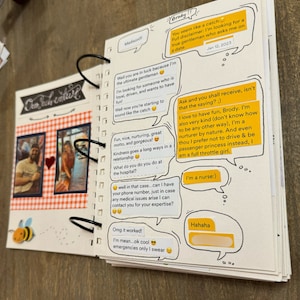 Brody!!
You seem like a catch...
a true gentleman. I'm looking for a
true gentleman who asks me on
a date
Jan 12, 2023
Well you are in luck because I'm
the ultimate gentleman 😉
I'm looking for someone who is
loyal, driven, and wants to
have fun!
Well now you're starting to
sound like the catch 😉
Ask and you shall receive, isn't
that the saying? :)
I love to have fun, Brody. I'm
also very kind (don't know how
to be any other way), I'm a
nurturer by nature. And even
tho I prefer not to drive & be
passenger princess instead, I
am a full throttle gal!!
Fun, kind, nurturing, great
taste, and gorgeous! 😍
Kindness goes a long ways in a
relationship 😊
What do you do you do at
the hospital?
I'm a nurse :)
😊 well in that case.. can I have
your phone number, just in case
any medical issues arise I can
contact you for your expertise?
Hahaha
Omg it worked!
I'm mean.. ok cool 😎
emergencies only I swear 😂